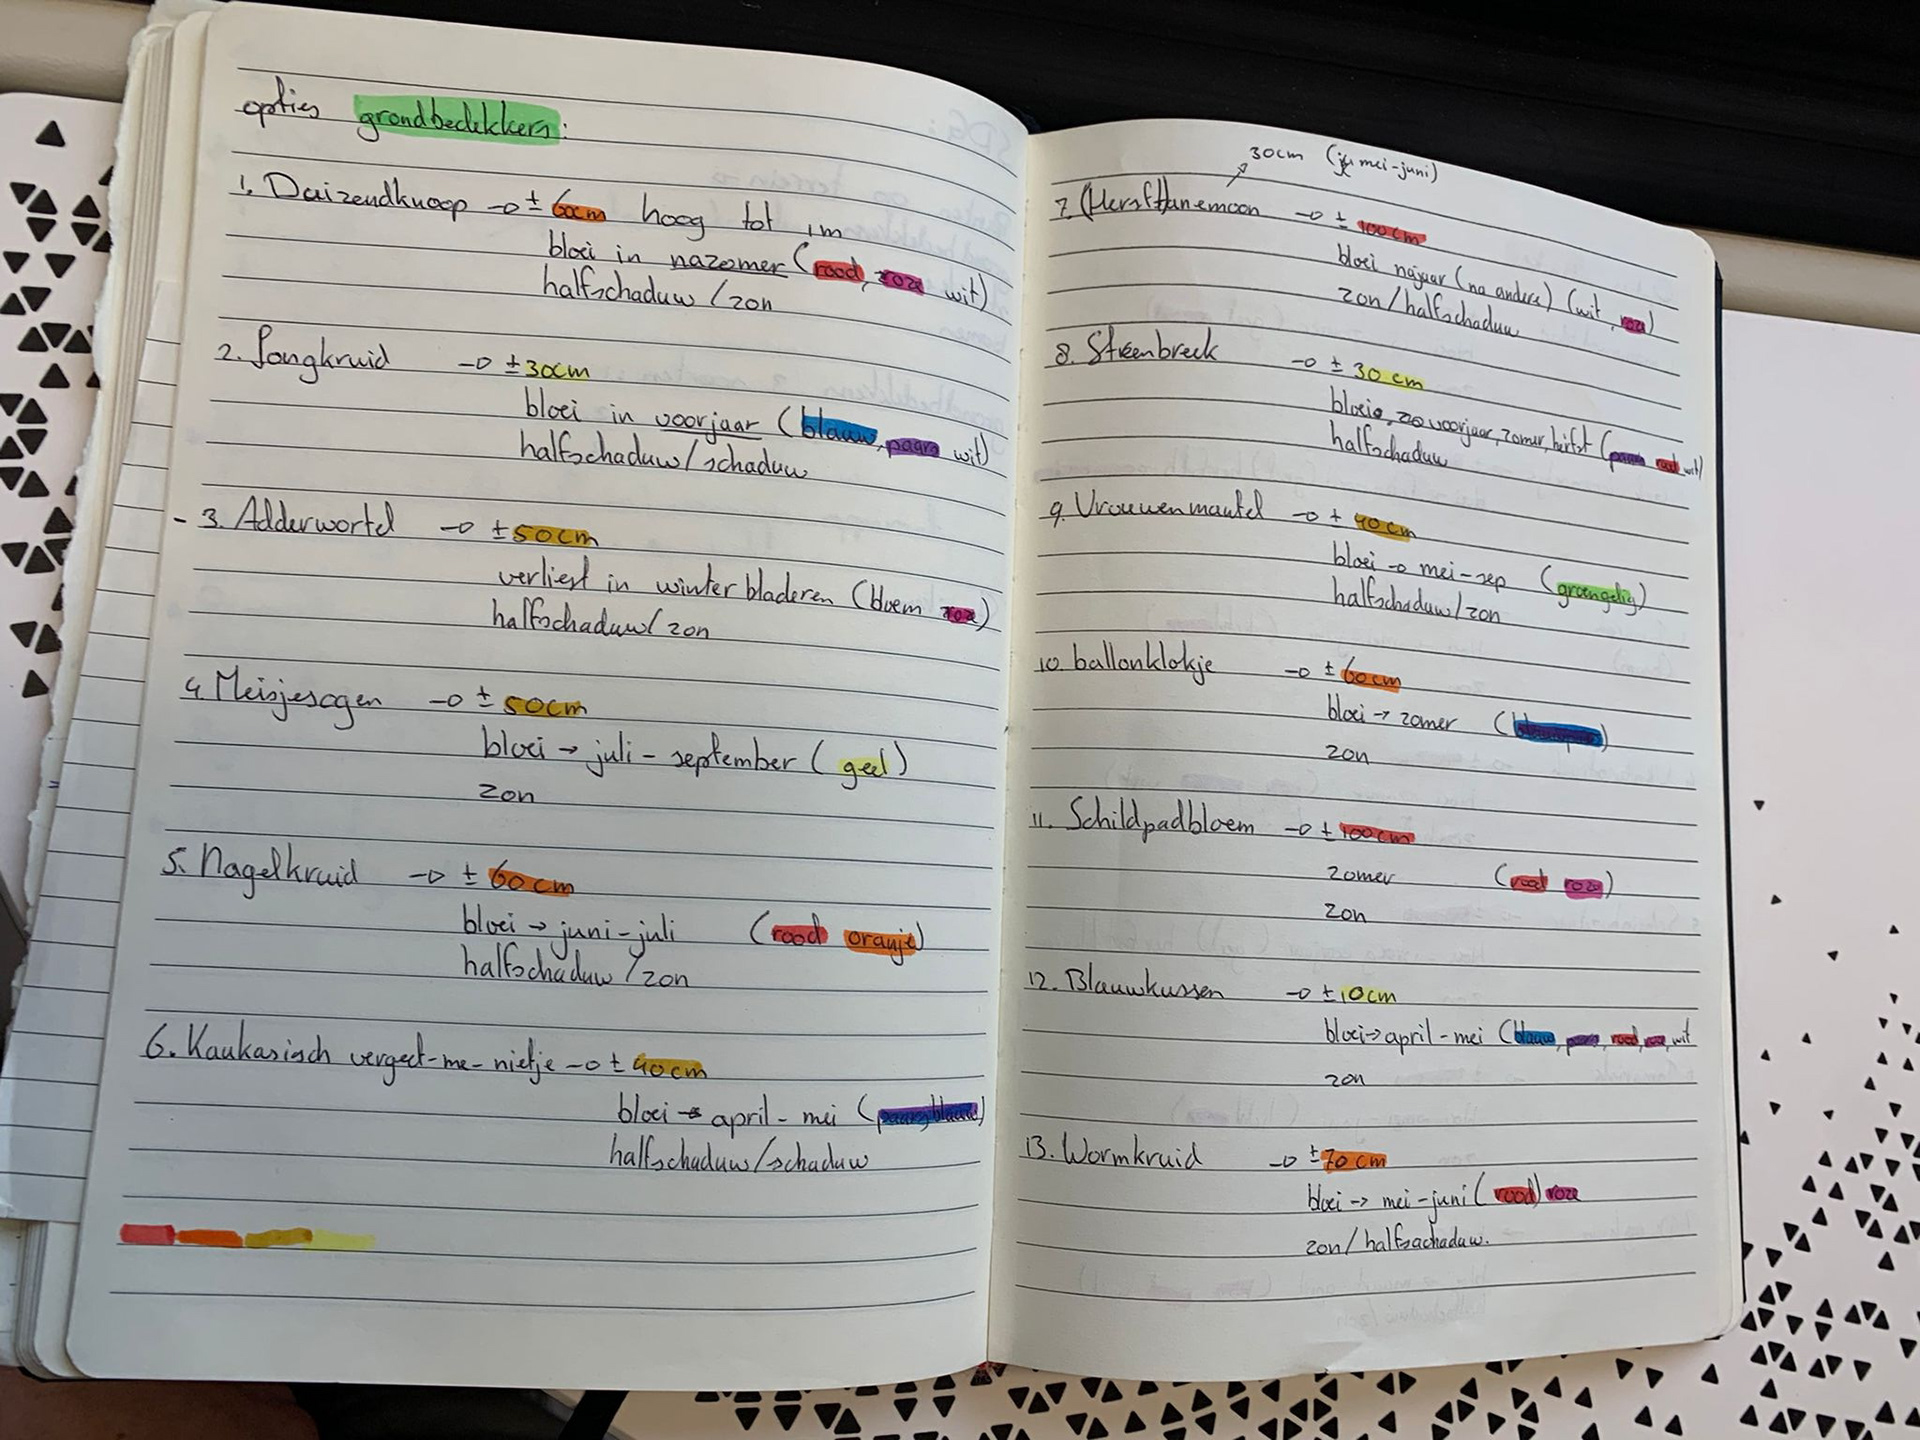 opties grondbedekkers:
1. Duizendknoop → ± 60cm hoog tot 1m
bloei in nazomer (rood, roze wit)
halfschaduw / zon
2. Longkruid → ± 30cm
bloei in voorjaar (blauw, paars wit)
halfschaduw / schaduw
- 3. Adderwortel → ± 50cm
verliest in winter bladeren (bloem roze)
halfschaduw / zon
4 Meisjesogen → ± 50cm
bloei → juli - september (geel)
zon
5. Nagelkruid → ± 60cm
bloei → juni - juli (rood oranje)
halfschaduw / zon
6. Kaukasisch vergeet-me-nietje → ± 40cm
bloei → april - mei (paarsblauw)
halfschaduw / schaduw
30cm (mei - juni)
7. (Herfst)anemoon → ± 100cm
bloei najaar (na andere) (wit, roze)
zon / halfschaduw
8. Steenbreek → ± 30 cm
bloei voorjaar, zomer, herfst (paars rood wit)
halfschaduw
9. Vrouwenmantel → ± 40cm
bloei → mei - sep (groengelig)
halfschaduw / zon
10. ballonklokje → ± 60cm
bloei → zomer (blauwpaars)
zon
11. Schildpadbloem → ± 100cm
zomer (rood roze)
zon
12. Blauwkussen → ± 10cm
bloei → april - mei (blauw, paars, rood, roze, wit
zon
13. Wormkruid → ± 70 cm
bloei → mei - juni (rood) roze
zon / halfsachaduw.